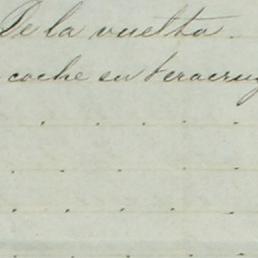 De la vuelta.
coche en Veracruz